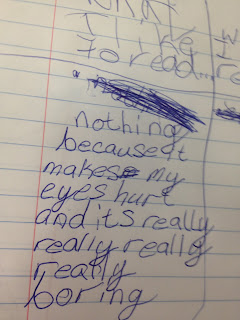 I like
to read...
nothing
because it
makes my
eyes hurt
and its really
really really
really
boring